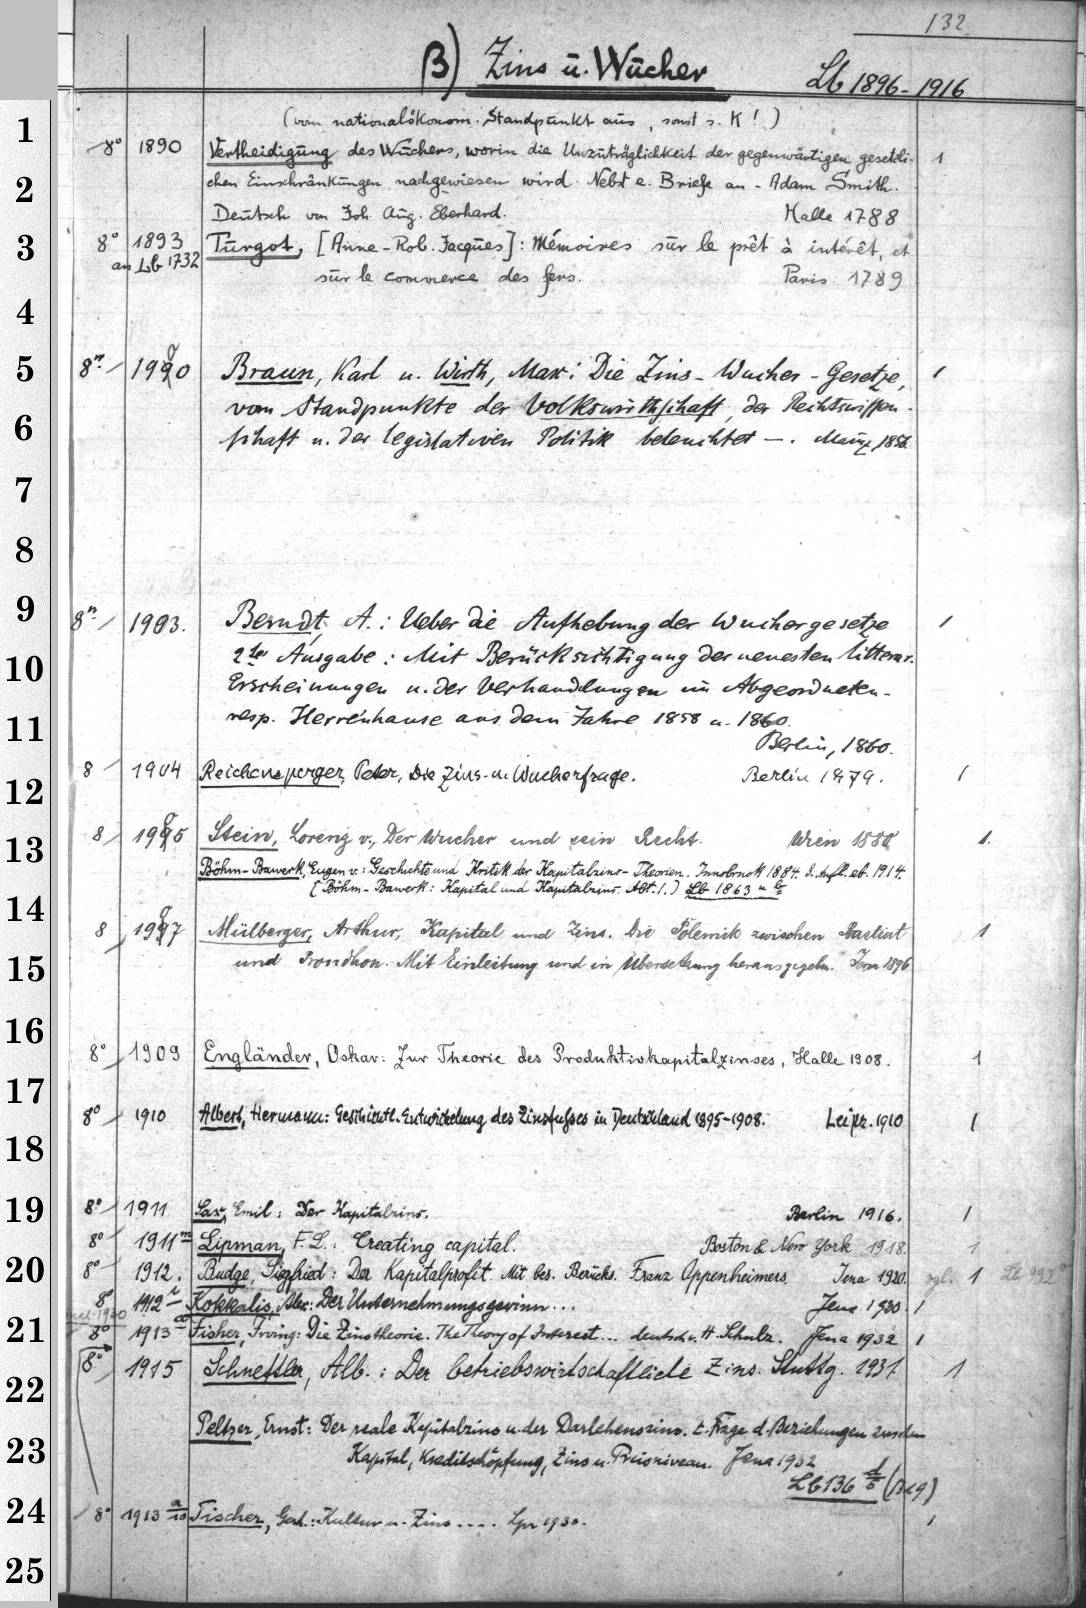 132
B) Zins u. Wucher Lb 1896-1916
(vom nationalökonom. Standpunkt aus, sonst s. K!)
1
8° 1890 Vertheidigung des Wuchers, worin die Unzuträglichkeit der gegenwärtigen gesetzli- 1
2
chen Einschränkungen nachgewiesen wird. Nebst e. Briefe an - Adam Smith.
Deutsch von Joh. Aug. Eberhard. Halle 1788
3
8° 1893 Turgot, [Anne-Rob. Jacques]: Mémoires sur le prêt à intérêt, et
an Lb 1732 sur le commerce des fers. Paris 1789
4
5
8° 1900 Braun, Karl u. Wirth, Max: Die Zins-Wucher-Gesetze, 1
vom Standpunkte der Volkswirthschaft, der Rechtswissen-
6
schaft u. der legislativen Politik beleuchtet —. Mainz, 1856.
7
8
9
8° 1903. Berndt, A.: Ueber die Aufhebung der Wuchergesetze 1
10
2te Ausgabe: Mit Berücksichtigung der neuesten litterar.
Erscheinungen u. der Verhandlungen im Abgeordneten-
11
resp. Herrenhause aus dem Jahre 1858 u. 1860.
Berlin, 1860.
12
8 1904 Reichensperger, Peter, Die Zins- u. Wucherfrage. Berlin 1879. 1
13
8 1905 Stein, Lorenz v., Der Wucher und sein Recht. Wien 1880 1.
Böhm-Bawerk, Eugen v.: Geschichte und Kritik der Kapitalzins-Theorien. Innsbruck 1884. 3. Aufl. eb. 1914.
(Böhm-Bawerk: Kapital und Kapitalzins. Abt. 1.) Lb 1863
14
8 1907 Mülberger, Arthur, Kapital und Zins. Die Polemik zwischen Bastiat 1
15
und Proudhon. Mit Einleitung und in Übersetzung herausgegeben. Jena 1896
16
8° 1909 Engländer, Oskar: Zur Theorie des Produktivkapitalzinses, Halle 1908. 1
17
8° 1910 Albert, Hermann: Geschichtl. Entwickelung des Zinsfußes in Deutschland 1895-1908. Leipz. 1910 1
18
19
8° 1911 Sax, Emil: Der Kapitalzins. Berlin 1916. 1
8° 1911m Lipman, F. L.: Creating capital. Boston & New York 1918. 1
20
8° 1912. Budge, Sigfried: Der Kapitalprofit. Mit bes. Berücks. Franz Oppenheimers. Jena 1920. vgl. 1 Lb 992
8° 1912 Kokkalis, Alex: Der Unternehmungsgewinn... Jena 1930. 1
21
8° 1913a Fisher, Irving: Die Zinstheorie. The Theory of Interest... deutsch v. H. Schulz. Jena 1932 1
8° 1915 Schnettler, Alb.: Der betriebswirtschaftliche Zins. Stuttg. 1931. 1
22
Peltzer, Ernst: Der reale Kapitalzins u. der Darlehenszins. z. Frage d. Beziehungen zwischen
23
Kapital, Kreditschöpfung, Zins u. Preisniveau. Jena 1932
Lb 136
24
8° 1913 a/10 Fischer, Gerh.: Kultur u. Zins .... Lpz 1930. 1
25